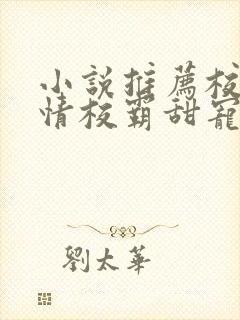 小說推薦校
情校霸甜寵
劉太華